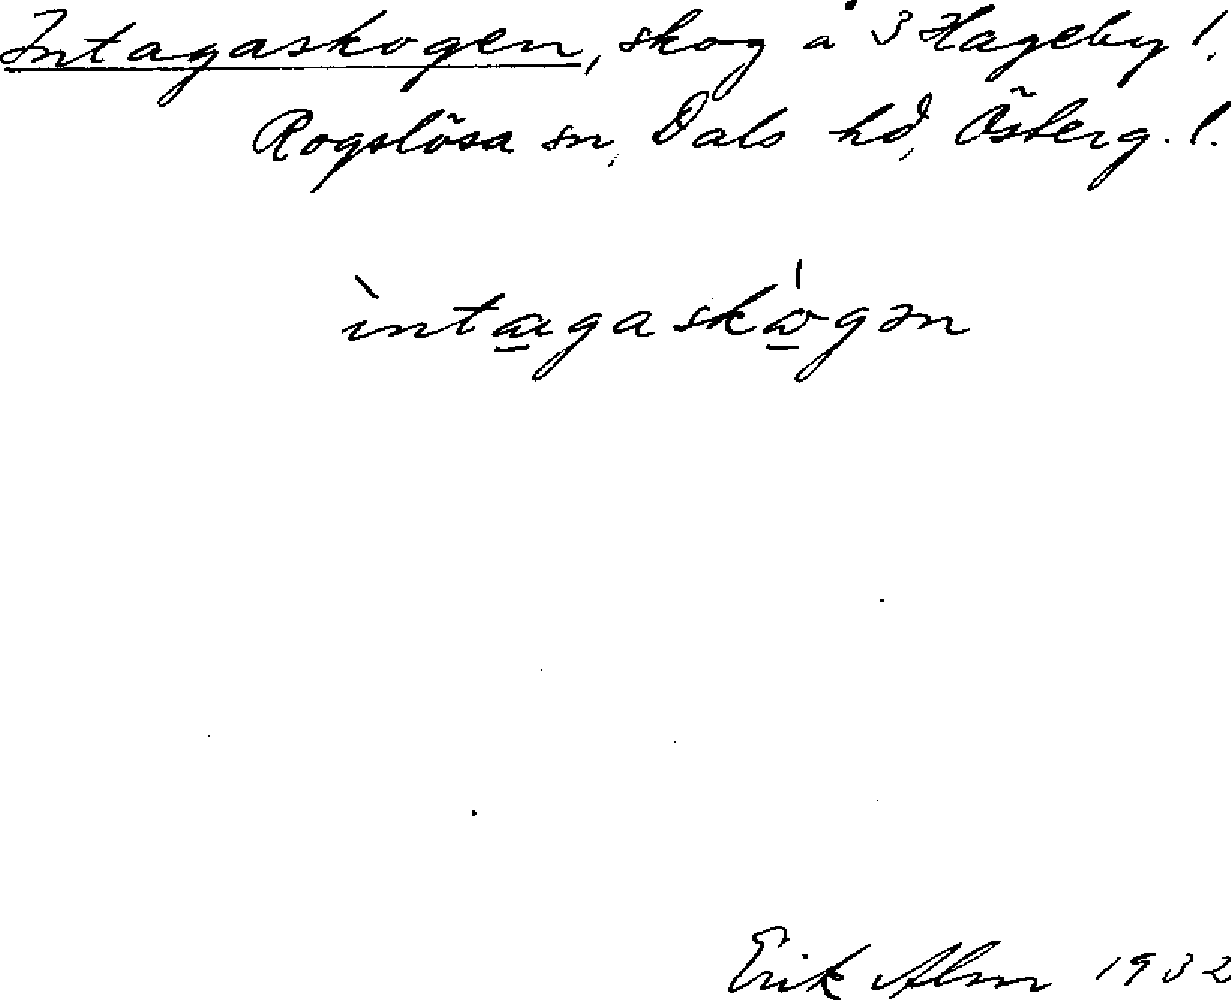 Intagaskogen, skog å 3 Hageby!.
Rogslösa sn, Dals hd, Österg. l.
ìntagaskógən
Erik Alm 1932